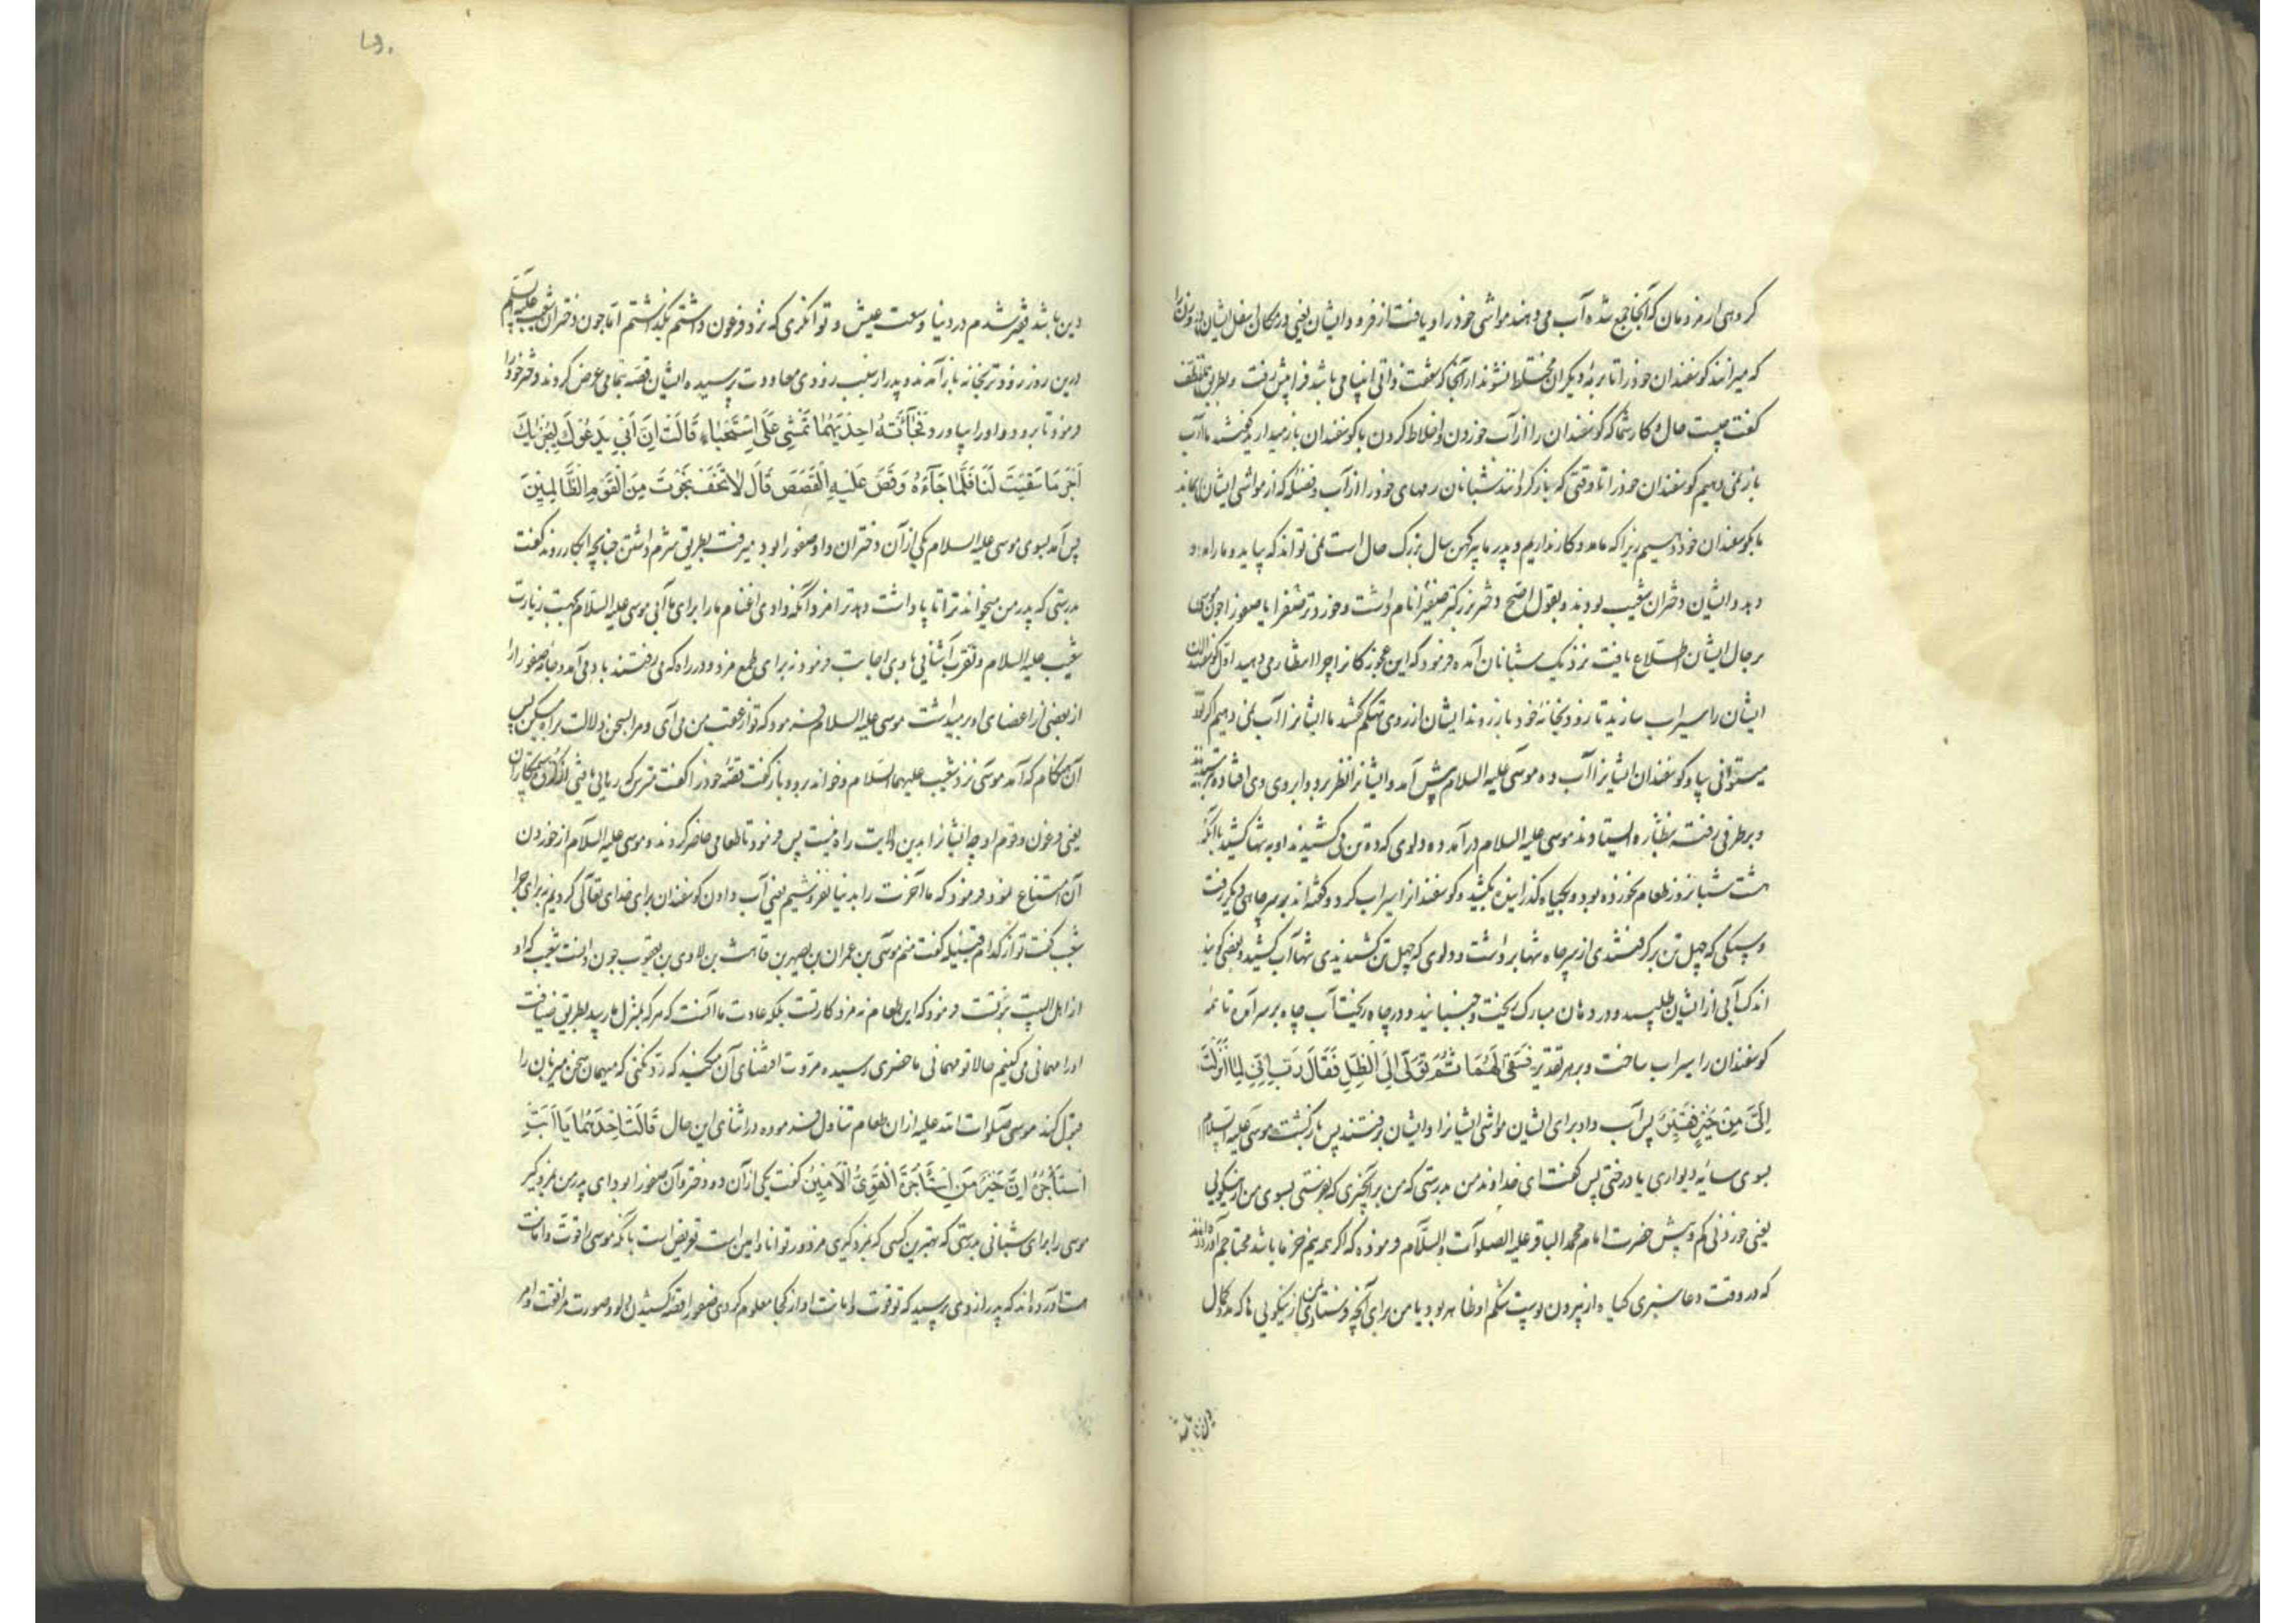 کروهی از مردمان که آنجا جمع شده آب می دهند مواشی خود را و یافت از فرود ایشان یعنی در مکان اسفل ایشان دو زن را
که میراندند کوسفندان خود را تا برمهٔ دیکران مختلط نشوند از آنجا که شفقت ذاتی انبیا می باشد فرا پیش رفت و بطریق تلطف
کفت چیست حال و کار شما که کوسفندان را از آب خوردن و اختلاط کردن با کوسفندان باز میدارید کفتند ما آب
باز نمی دهیم کوسفندان خود را تا وقتی که باز کردانند شبانان رمهای خود را از آب و فضله که از مواشی ایشان بماند
ما بکوسفندان خود دهیم زیرا که ما مددکار نداریم و پدر ما پیر کهن سال بزرک حال است نمی تواند که بیاید و ما را مدد
دهد و ایشان دختران شعیب بودند و بقول اصح دختر بزرکتر صفیرا نام داشت و خوردتر صفرا یا صفورا چون موسی
بر حال ایشان اطلاع یافت نزدیک شبانان آمده فرمود که این عجوزکانرا چرا انتظار می دهید اول کوسفندان
ایشان را سیراب سازید تا زود بخانهٔ خود باز روند ایشان از روی تهکم کفتند ما ایشانرا آب نمی دهیم اکر تو
میتوانی بیا و کوسفندان ایشانرا آب ده موسی علیه السلام پیش آمد و ایشانرا نظر برو و ابروی وی افتاده بترسیدند
و برطرفی رفته بنظاره ایستادند موسی علیه السلام درآمد و دلوی که ده تن می کشیدند او به تنها کشید با آنکه
هشت شبانروز طعام نخورده بود و بکیاه کذرانیده بکشید و کوسفندانرا سیراب کرد و کفته اند بر سر چاهی دیکر رفت
و سنکی که چهل تن برکرفتندی از سر چاه تنها برداشت و دلوی که چهل تن کشیدندی تنها آب کشید و بعضی کویند
اندک آبی از ایشان طلبید و در دهان مبارک ریخت و جنبانید و در چاه ریخت آب چاه بر سر آمد تا همه
کوسفندان را سیراب ساخت و بر هر تقدیر فَسَقَى لَهُمَا ثُمَّ تَوَلَّى إِلَى الظِّلِّ فَقَالَ رَبِّ إِنِّي لِمَا أَنْزَلْتَ
إِلَيَّ مِنْ خَيْرٍ فَقِيرٌ پس آب داد برای ایشان مواشی ایشانرا و ایشان برفتند پس بازکشت موسی علیه السلام
بسوی سایهٔ دیواری یا درختی پس کفت ای خداوند من بدرستی که من برآنچیزی که بفرستی بسوی من از نیکویی
یعنی خوردنی کم و بیش حضرت امام محمد الباقر علیه الصلوات والسلام فرموده که اکر همه نیم خرما باشد محتاجم آورده‌اند
که در وقت دعا سبزی کیاه از بیرون پوست شکم او ظاهر بود یا من برای آنچه فرستادی بمن از نیکویی ها که مدد کمال
دین باشد فقیر شدم در دنیا و سعت عیش و توانکری که نزد فرعون داشتم بکذاشتم اما چون دختران شعیب علیه السلام
درین روز زودتر بخانه باز آمدند و پدر از سبب زودی معاودت پرسیده ایشان قصه بتمامی عرض کردند دختر خود را
فرمود تا برود و او را بیاورد فَجَاءَتْهُ إِحْدَيهُمَا تَمْشِي عَلَى اسْتِحْيَاءٍ قَالَتْ إِنَّ أَبِي يَدْعُوكَ لِيَجْزِيَكَ
أَجْرَ مَا سَقَيْتَ لَنَا فَلَمَّا جَاءَهُ وَقَصَّ عَلَيْهِ الْقَصَصَ قَالَ لَا تَخَفْ نَجَوْتَ مِنَ الْقَوْمِ الظَّالِمِينَ
پس آمد بسوی موسی علیه السلام یکی از آن دختران و او صفورا بود میرفت بطریق شرم داشتن چنانچه ابکار روند کفت
بدرستی که پدر من میخواند ترا تا پاداشت دهد ترا مزد آنکه دادی اغنام ما را برای ما آبی موسی علیه السلام بجهت زیارت
شعیب علیه السلام و تقرب آشنایی با وی اجابت فرمود نه برای طمع مزد و در راه که می رفتند باد می آمد و جامهٔ صفورا را
از بعضی از اعضای او برمیداشت موسی علیه السلام فرمود که تو از عقب من می آی و مرا بسخن دلالت براه میکن پس
آن هنکام که آمد موسی نزد شعیب علیهما السلام و خواند برو و بازکفت قصهٔ خود را کفت مترس که رهایی یافتی از کروه ستمکاران
یعنی فرعون و قوم او چه ایشانرا بدین ولایت راه نیست پس فرمود تا طعامی حاضر کردند و موسی علیه السلام از خوردن
آن امتناع نمود فرمود که ما آخرت را بدنیا نفروشیم یعنی آب دادن کوسفندان برای خدای تعالی کردیم نه برای جزا
شعیب کفت تو از کدام قبیله کفت منم موسی بن عمران بن یصهر بن قاهث بن لاوی بن یعقوب چون دانست شعیب که او
از اهل البیت نبوتست فرمود که این طعام نه مزد کار تست بلکه عادت ما آنست که هرکه بمنزل ما رسید بطریق ضیافت
او را مهمانی می کنیم حالا تو مهمانی ما حضری رسیده مروت اقتضای آن میکند که رد نکنی که میهمان سخن میزبان را
قبول کند موسی صلوات الله علیه از ان طعام تناول فرموده در اثنای این حال قَالَتْ إِحْدَيهُمَا يَا أَبَتِ
اسْتَأْجِرْهُ إِنَّ خَيْرَ مَنِ اسْتَأْجَرْتَ الْقَوِيُّ الْأَمِينُ کفت یکی از آن دو دختر و آن صفورا بود ای پدر من بمزد کیر
موسی را برای شبانی بدرستی که بهترین کسی که بمزد کیری مزدور توانا و امین است تعریض است بآنکه موسی را قوت و امانت
هست آورده‌اند که پدر از وی پرسید که تو قوت و امانت او از کجا معلوم کردی صفورا قصهٔ کشیدن دلو و صورت مرافقت و امر